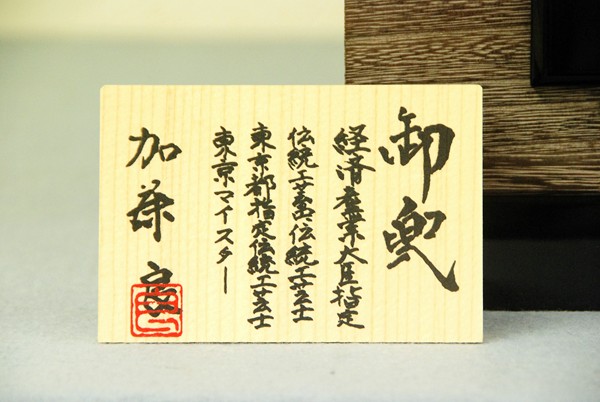 御兜
経済産業大臣指定
伝統工芸品伝統工芸士
東京都指定伝統工芸士
東京マイスター
加藤